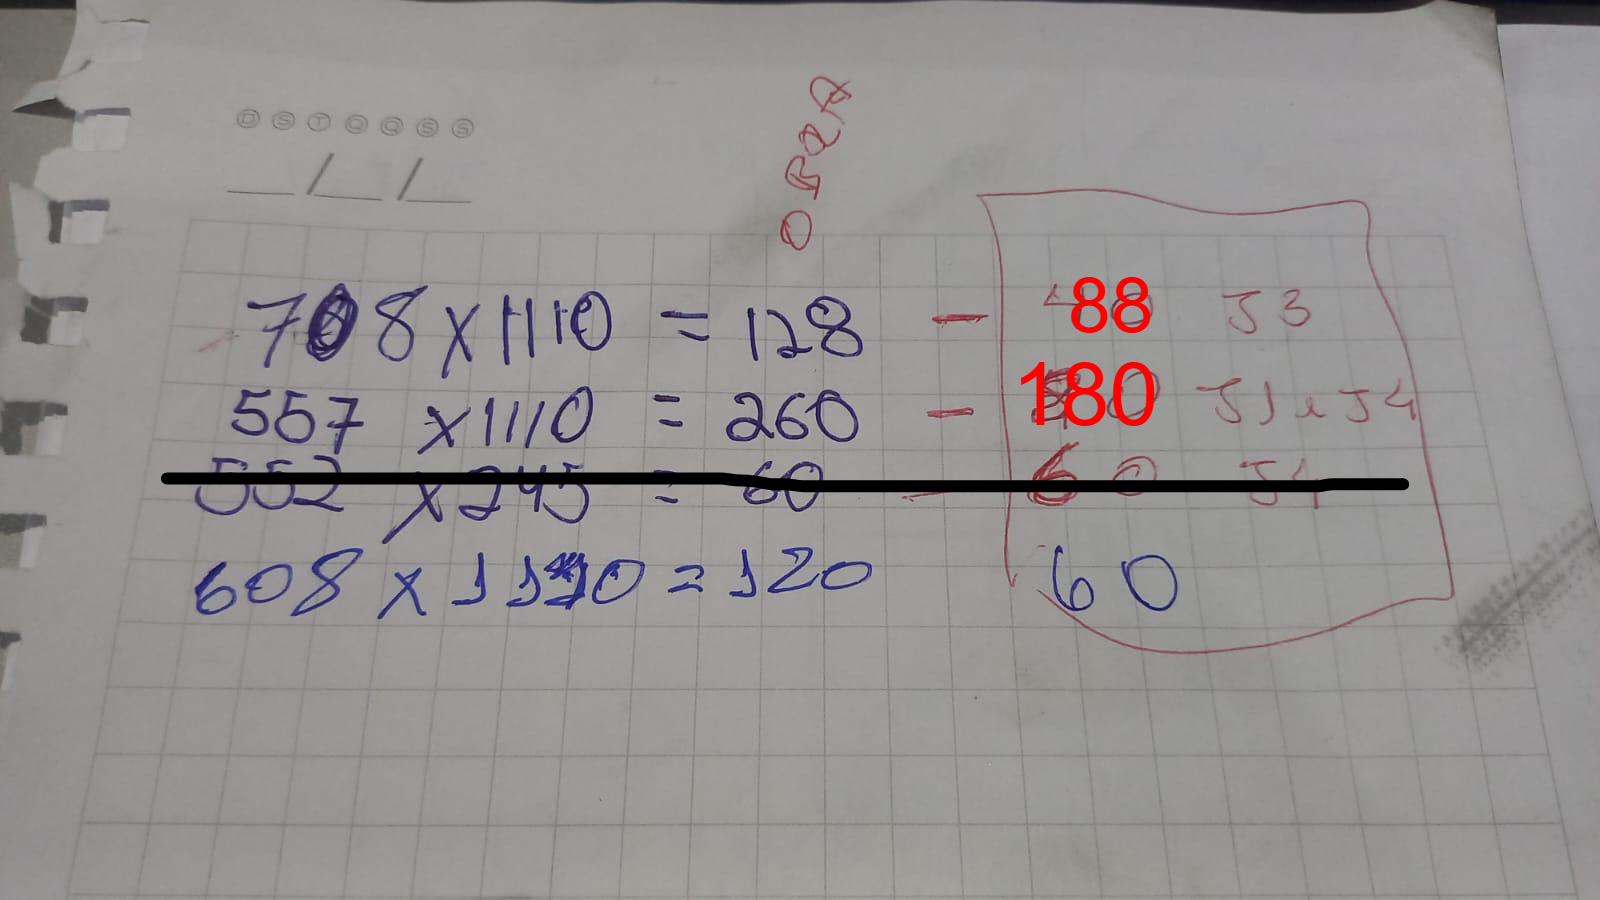 D S T Q Q S S
__/__/__
OBRA
708 x 1110 = 128 - 88 J3
557 x 1110 = 260 - 180 J1 e J4
552 x 245 = 60 - 60 J4
608 x 1110 = 120 60